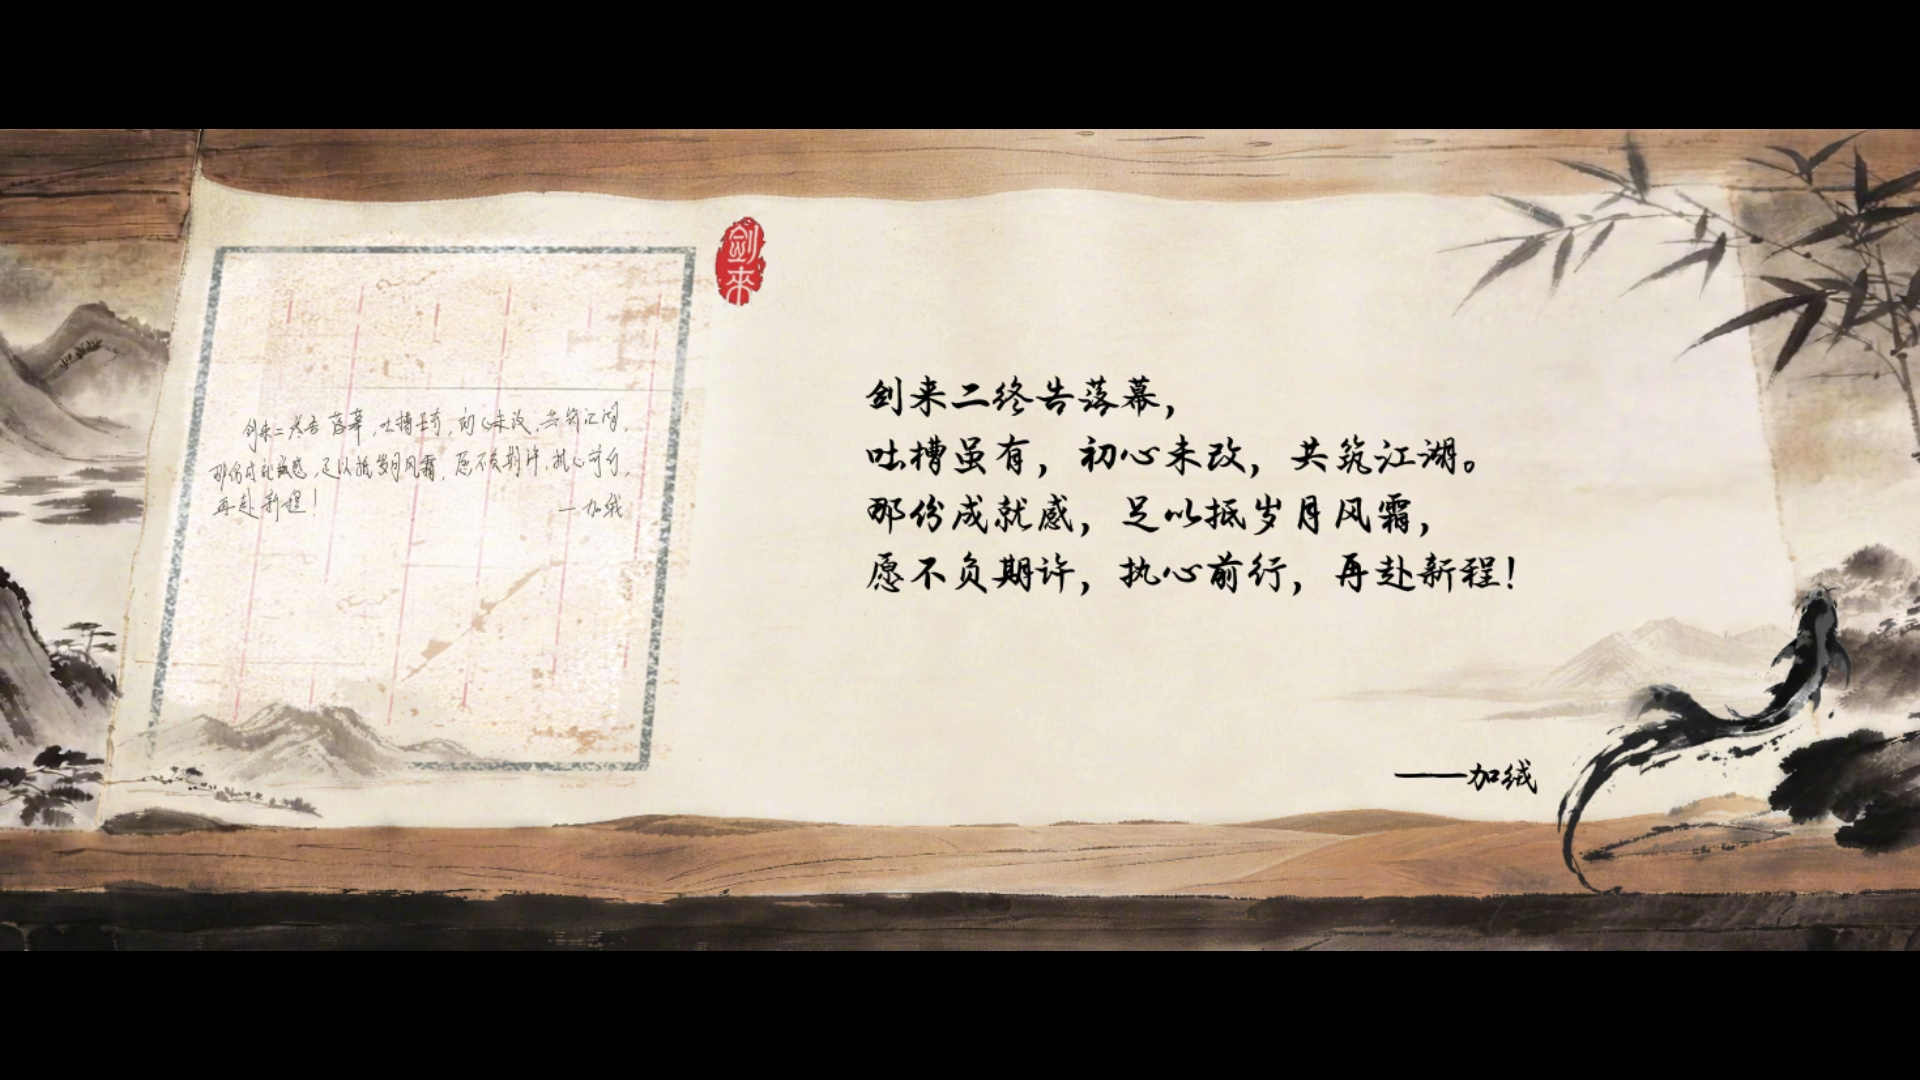 剑来二终告落幕,吐槽虽有,初心未改,共筑江湖,
那份成就感,足以抵岁月风霜,愿不负期许,执心前行,
再赴新程!
—加绒
剑来
剑来二终告落幕，
吐槽虽有，初心未改，共筑江湖。
那份成就感，足以抵岁月风霜，
愿不负期许，执心前行，再赴新程！
——加绒